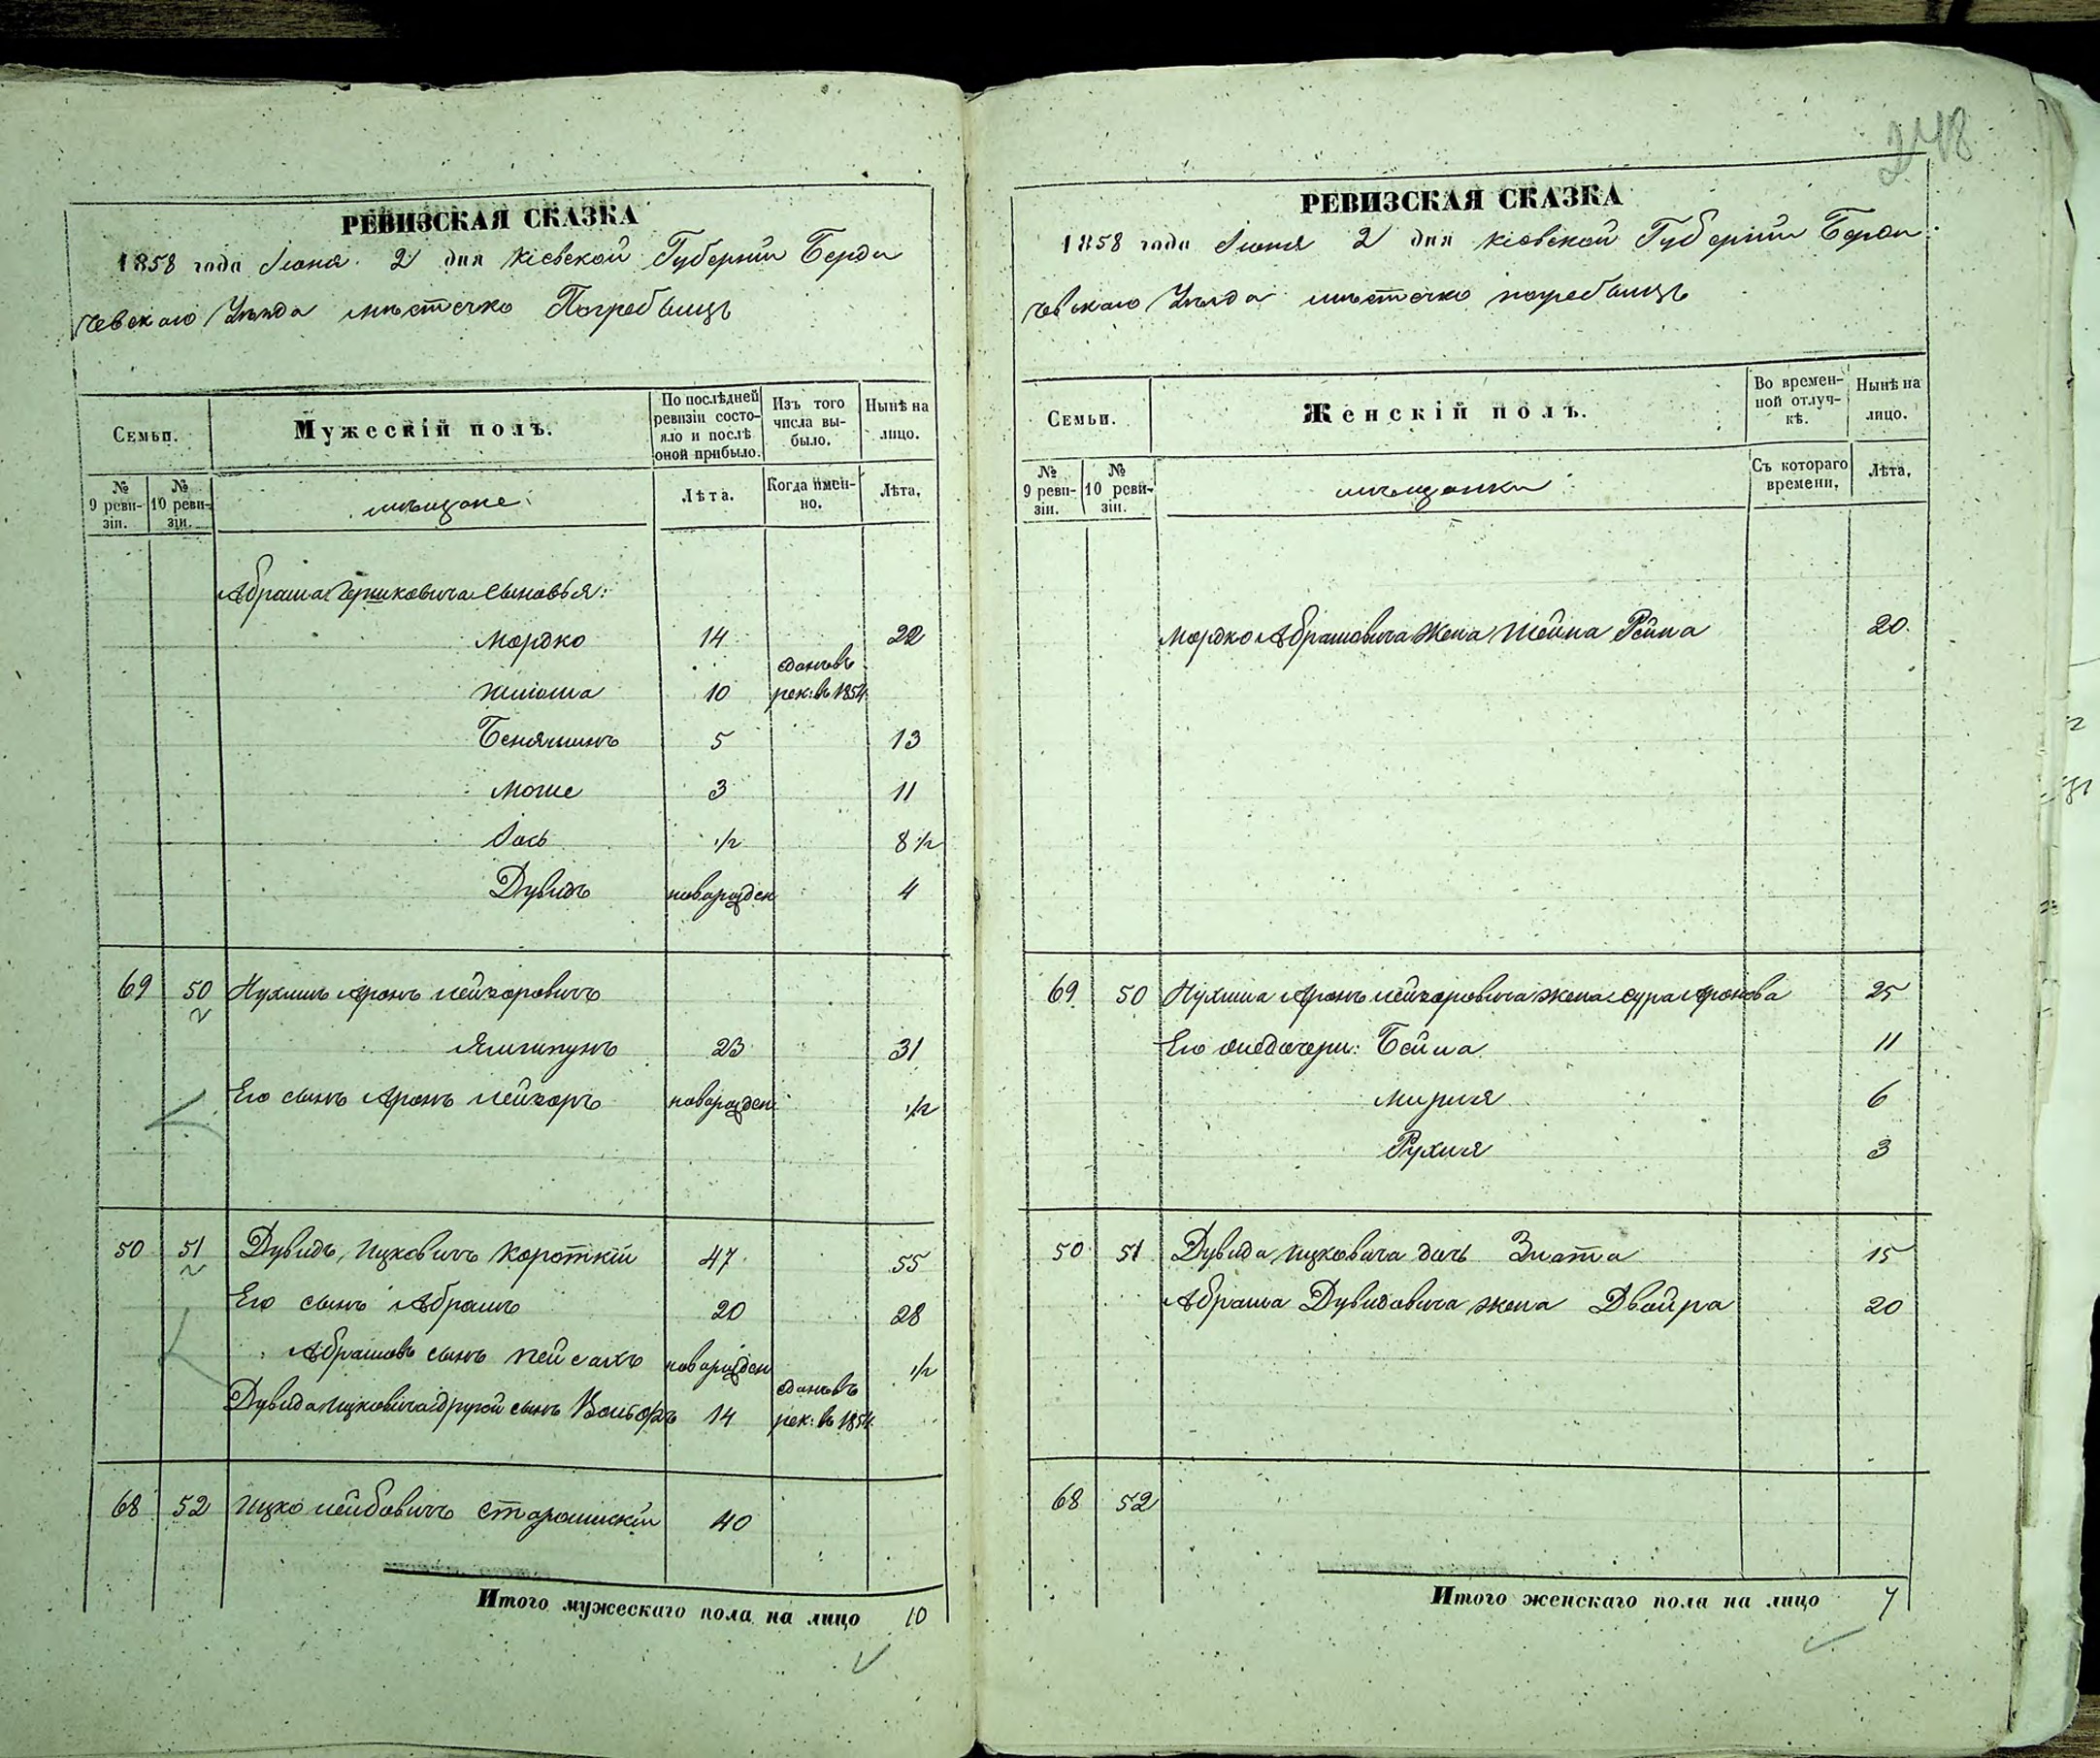 248
РЕВИЗСКАЯ СКАЗКА
1858 года Іюня 2 дня Кіевской Губерніи Берди
чевскаго Уѣзда мѣстечко Погребищъ
Семьи.
Мужескій полъ.
По послѣдней ревизіи состояло и послѣ оной прибыло.
Изъ того числа выбыло.
Нынѣ на лицо.
№ 9 ревизіи.
№ 10 ревизіи.
мѣщане
Лѣта.
Когда именно.
Лѣта.
Абраша Гершковича сыновья:
Мордко 14 22
10 сданъ въ рек: въ 1854
Беняминъ 5 13
Моше 3 11
Іось 1/2 8 1/2
Дувидъ новорожден 4
69 50 Нухимъ Аронъ Лейзоровичъ
23 31
Его сынъ Аронъ Лейзоръ новорожден 1/2
50 51 Дувидъ Ицковичъ Короткій 47 55
Его сынъ Абрамъ 20 28
Абрамовъ сынъ Пейсахъ новорожден 1/2
Дувида Ицковича другой сынъ 14 сданъ въ рек: въ 1854
68 52 Ицко Лейбовичъ 40
Итого мужескаго пола на лицо 10
РЕВИЗСКАЯ СКАЗКА
1858 года Іюня 2 дня Кіевской Губерніи Берди
чевскаго Уѣзда мѣстечко Погребищъ
Семьи.
Женскій полъ.
Во временной отлучкѣ.
Нынѣ на лицо.
№ 9 ревизіи.
№ 10 ревизіи.
мѣщанки
Съ котораго времени.
Лѣта.
Мордко Абрамовича жена Шейна Рейна 20
69 50 Нухима Аронъ Лейзоровича жена Сура Аронова 25
Его дочери: Бейла 11
Мирля 6
Рухля 3
50 51 Дувида Ицковича дочь Злата 15
Абрама Дувидовича жена Двойра 20
68 52
Итого женскаго пола на лицо 7